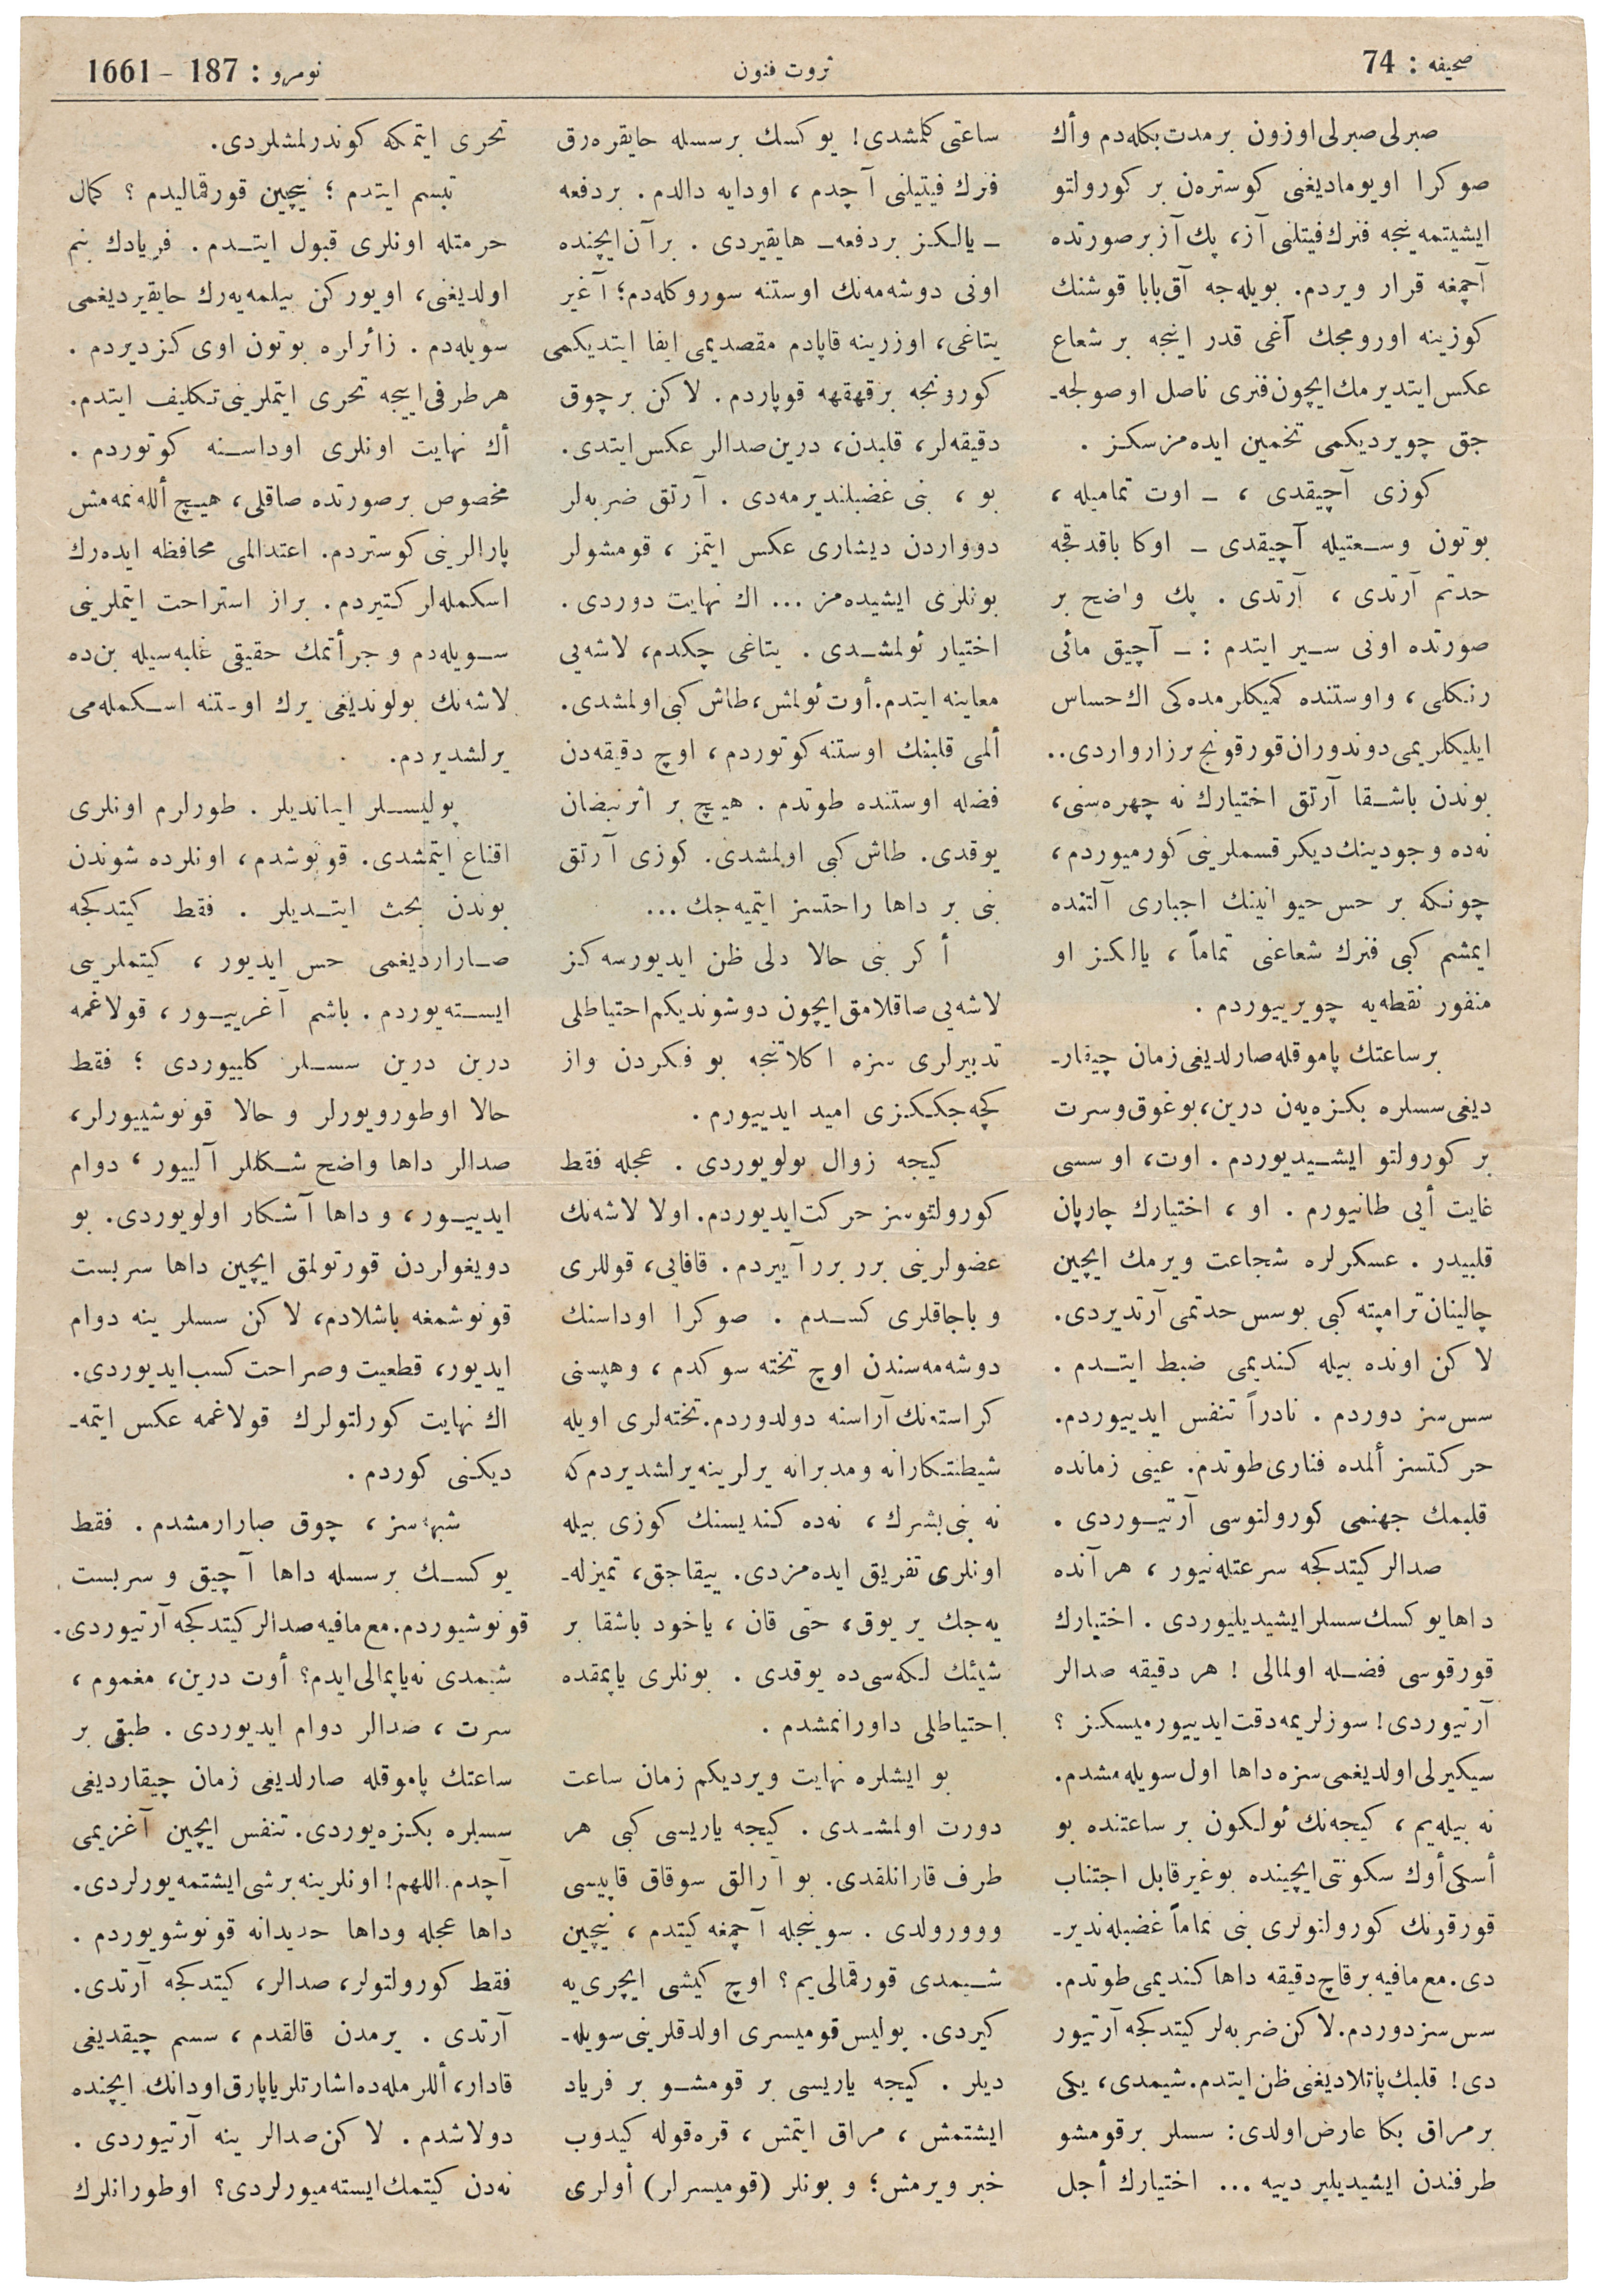 صحيفه : 74
ثروت فنون
نومرو : 187 – 1661
صبرلی صبرلی اوزون بر مدت بكله‌دم و أك
صوكرا اويوماديغنی كوسترەن بر كورولتو
ايشيتمه ينجه فنرك فيتلنی آز، پك آز بر صورتده
آچمغه قرار ويردم. بويله‌جه آق بابا قوشنك
كوزينه اورومجك آغی قدر اينجه بر شعاع
عكس ايتديرمك ايچون فنری ناصل اوصولجه‌ـ
جق چويرديكمی تخمين ايده‌مزسكز .
كوزی آچيقدی ، ــ اوت تماميله ،
بوتون وسعتيله آچيقدی ــ اوكا باقدقجه
حدتم آرتدی ، آرتدی . پك واضح بر
صورتده اونی سير ايتدم : ــ آچيق مائی
رنكلی ، و اوستنده كميكلرمده‌كی اك حساس
ايليكلريمی دوندوران قورقونج بر زار واردی..
بوندن باشقا آرتق اختيارك نه چهره‌سنی،
نه‌ده وجودينك ديكر قسملرينی كورميوردم،
چونكه بر حس حيوانينك اجباری آلتنده
ايمشم كبی فنرك شعاعنی تماماً ، يالكز او
منفور نقطه‌يه چويرييوردم .
بر ساعتك پاموقله صارلديغی زمان چيقارـ
ديغی سسلره بكزه‌يەن درين، بوغوق و سرت
بر كورولتو ايشيديوردم . اوت، او سسی
غايت أيی طانيورم . او ، اختيارك چارپان
قلبيدر . عسكرلره شجاعت ويرمك ايچين
چالينان ترامپته كبی بو سس حدتمی آرتديردی.
لاكن اونده بيله كنديمی ضبط ايتدم .
سس‌سز دوردم . نادراً تنفس ايدييوردم.
حركتسز ألمده فناری طوتدم. عينی زمانده
قلبمك جهنمی كورولتوسی آرتيوردی .
صدالر كيتدكجه سرعتله‌نيور ، هر آنده
داها يوكسك سسلر ايشيديليوردی . اختيارك
قورقوسی فضله اولمالی ! هر دقيقه صدالر
آرتيوردی! سوزلريمه دقت ايدييورميسكز ؟
سيكيرلی اولديغمی سزه داها اول سويله‌مشدم.
نه بيله‌يم ، كيجه‌نك ئولكون بر ساعتنده بو
أسكی أوك سكونتی ايچينده بو غير قابل اجتناب
قورقونك كورولتولری بنی تماماً غضبله‌نديرـ
دی. مع مافيه بر قاچ دقيقه داها كنديمی طوتدم.
سس‌سز دوردم. لاكن ضربه‌لر كيتدكجه آرتيور
دی! قلبك پاتلاديغنی ظن ايتدم. شيمدی، يكی
بر مراق بكا عارض اولدی: سسلر بر قومشو
طرفندن ايشيديلير دييه ... اختيارك أجل
ساعتی كلمشدی! يوكسك بر سسله حايقره‌رق
فنرك فيتيلنی آچدم ، اودايه دالدم . بر دفعه
ــ يالكز بر دفعه ــ هايقيردی . بر آن ايچنده
اونی دوشه‌مه‌نك اوستنه سوروكله‌دم؛ آغير
يتاغی، اوزرينه قاپادم مقصديمی ايفا ايتديكمی
كورونجه بر قهقهه قوپاردم. لاكن بر چوق
دقيقه‌لر، قلبدن، درين صدالر عكس ايتدی.
بو ، بنی غضبلنديرمه‌دی . آرتق ضربه‌لر
دوواردن ديشاری عكس ايتمز ، قومشولر
بونلری ايشيده‌مز ... اك نهايت دوردی.
اختيار ئولمشدی . يتاغی چكدم، لاشه‌يی
معاينه ايتدم. أوت ئولمش، طاش كبی اولمشدی.
ألمی قلبنك اوستنه كوتوردم ، اوچ دقيقه‌دن
فضله اوستنده طوتدم . هيچ بر اثر نبضان
يوقدی. طاش كبی اولمشدی. كوزی آرتق
بنی بر داها راحتسز ايتميه‌جك ...
أكر بنی حالا دلی ظن ايديورسه‌كز
لاشه‌يی صاقلامق ايچون دوشونديكم احتياطلی
تدبيرلری سزه اكلاتنجه بو فكردن واز
كچه‌جككزی اميد ايدييورم .
كيجه زوال بولويوردی . عجله فقط
كورولتوسز حركت ايديوردم. اولا لاشه‌نك
عضولرينی برر برر آييردم. قافايی، قوللری
و باجاقلری كسدم . صوكرا اوداسنك
دوشه‌مه‌سندن اوچ تخته سوكدم ، و هپسنی
كراسته‌نك آراسنه دولدوردم. تخته‌لری اويله
شيطنتكارانه و مدبرانه يرلرينه يرلشديردم كه
نه بنی بشرك ، نه‌ده كنديسنك كوزی بيله
اونلری تفريق ايده‌مزدی. ييقاجق، تميزله‌ـ
يه‌جك ير يوق، حتی قان ، ياخود باشقا بر
شيئك لكه‌سی‌ده يوقدی . بونلری ياپمقده
احتياطلی داورانمشدم .
بو ايشلره نهايت ويرديكم زمان ساعت
دورت اولمشدی . كيجه ياريسی كبی هر
طرف قارانلقدی. بو آرالق سوقاق قاپيسی
وورولدی . سوينجله آچمغه كيتدم ، نيچين
شيمدی قورقمالی‌يم؟ اوچ كيشی ايچری‌يه
كيردی. پوليس قوميسری اولدقلرينی سويله‌ـ
ديلر . كيجه ياريسی بر قومشو بر فرياد
ايشتمش ، مراق ايتمش ، قره‌قوله كيدوب
خبر ويرمش؛ و بونلر (قوميسرلر) أولری
تحری ايتمكه كوندرلمشلردی.
تبسم ايتدم ؛ نيچين قورقماليدم ؟ كمال
حرمتله اونلری قبول ايتدم . فريادك بنم
اولديغنی، اويوركن بيلمه‌يه‌رك حايقيرديغمی
سويله‌دم . زائرلره بوتون اوی كزديردم .
هر طرفی اييجه تحری ايتملرينی تكليف ايتدم.
أك نهايت اونلری اوداسنه كوتوردم .
مخصوص بر صورتده صاقلی، هيچ أللەنمه‌مش
پارالرينی كوستردم. اعتدالمی محافظه ايده‌رك
اسكمله‌لر كتيردم. براز استراحت ايتملرينی
سويله‌دم و جرأتمك حقيقی غلبه‌سيله بن‌ده
لاشه‌نك بولونديغی يرك اوستنه اسكمله‌می
يرلشديردم.
پوليسلر ايناندیلر . طورلرم اونلری
اقناع ايتمشدی. قونوشدم، اونلرده شوندن
بوندن بحث ايتديلر . فقط كيتدكجه
صاراردیغمی حس ايديور ، كيتملرينی
ايسته‌يوردم. باشم آغرييور، قولاغمه
درين درين سسلر كلييوردی ؛ فقط
حالا اوطورويورلر و حالا قونوشييورلر،
صدالر داها واضح شكللر آلييور ، دوام
ايدييور، و داها آشكار اولويوردی. بو
دويغولردن قورتولمق ايچين داها سربست
قونوشمغه باشلادم، لاكن سسلر ينه دوام
ايديور، قطعيت و صراحت كسب ايديوردی.
اك نهايت كورلتولرك قولاغمه عكس ايتمه‌ـ
ديكنی كوردم .
شبهه‌سز ، چوق صارارمشدم . فقط
يوكسك بر سسله داها آچيق و سربست
قونوشيوردم. مع مافيه صدالر كيتدكجه آرتيوردی.
شيمدی نه ياپمالی ايدم؟ أوت درين، مغموم ،
سرت ، صدالر دوام ايديوردی . طبقی بر
ساعتك پاموقله صارلديغی زمان چيقارديغی
سسلره بكزه‌يوردی. تنفس ايچين آغزيمی
آچدم. اللهم! اونلر ينه بر شی ايشتمه‌يورلردی.
داها عجله و داها حديدانه قونوشويوردم .
فقط كورولتولر، صدالر، كيتدكجه آرتدی.
آرتدی . يرمدن قالقدم ، سسم چيقديغی
قادار، أللرمله‌ده اشارتلر ياپارق اودانك ايچنده
دولاشدم . لاكن صدالر ينه آرتيوردی .
نه‌دن كيتمك ايسته‌ميورلردی؟ اوطورانلرك